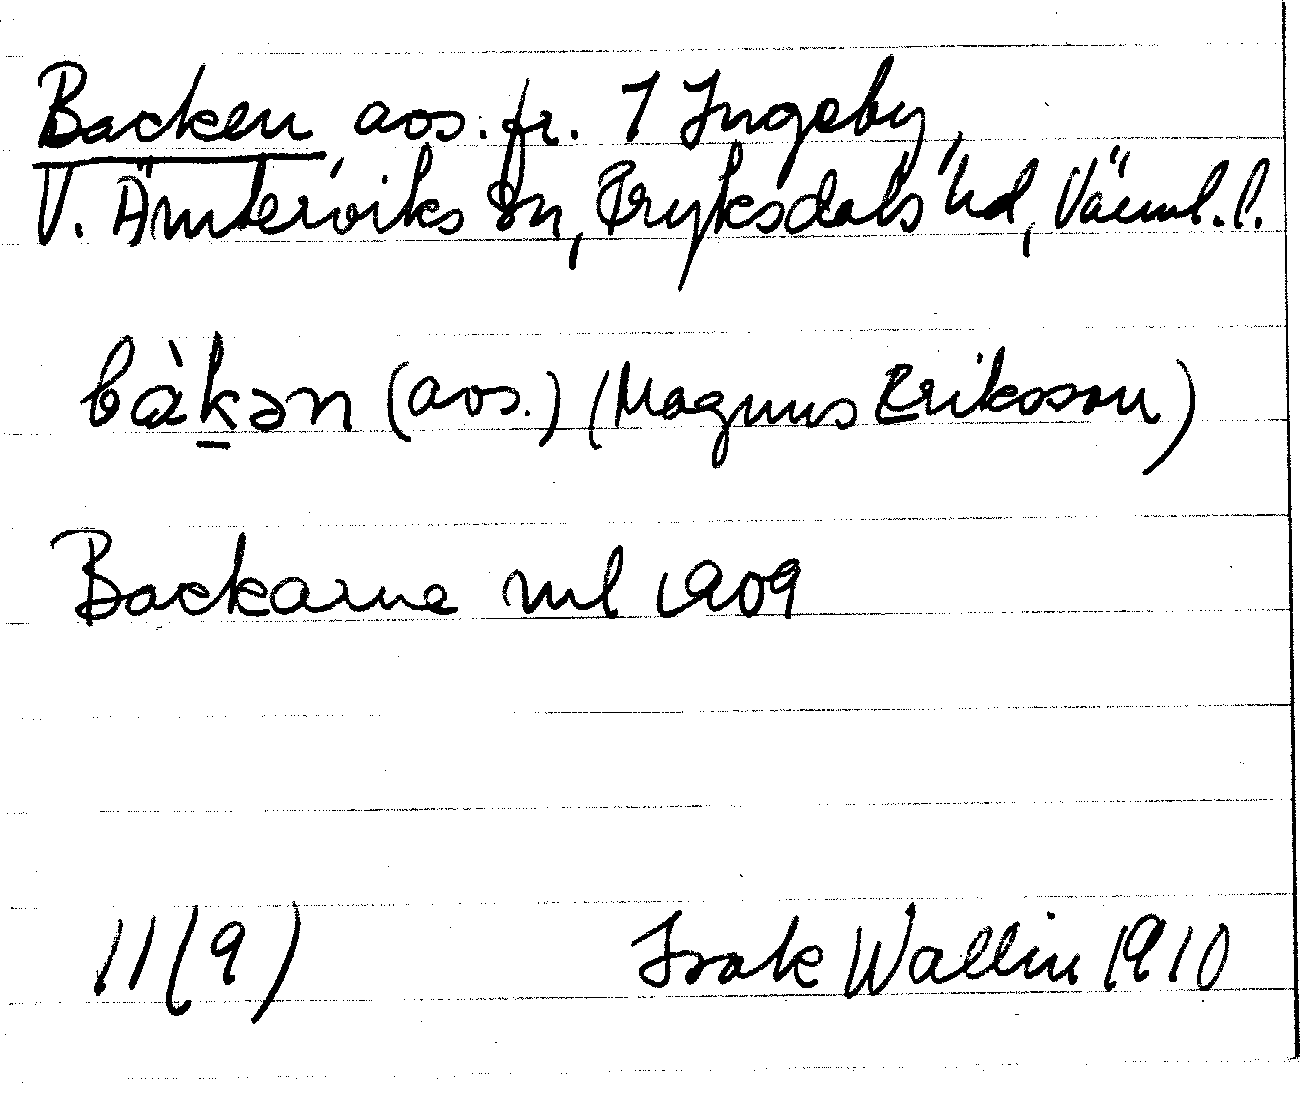 Backen avs. fr. 1 Ingeby,
V. Ämterviks sn, Fryksdals hd, Värml. l.
bàk̲ən (avs.) (Magnus Eriksson)
Backarne ml 1909
11(9) Isak Wallin 1910